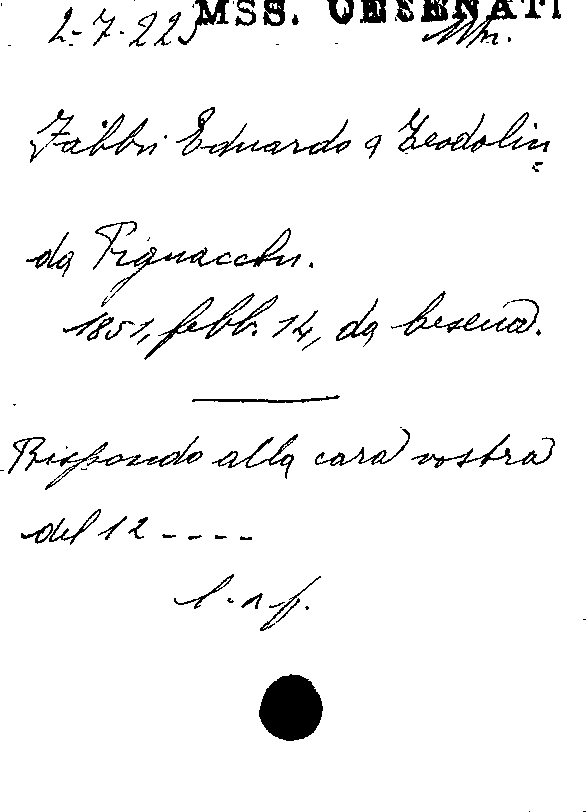 MSS. CESENATI
2-7-22)
Fabbri Eduardo a Teodolin=
da Pignacchi.
1851, febb. 14, da Cesena.
Rispondo alla cara vostra
del 12 ----
l. a f.